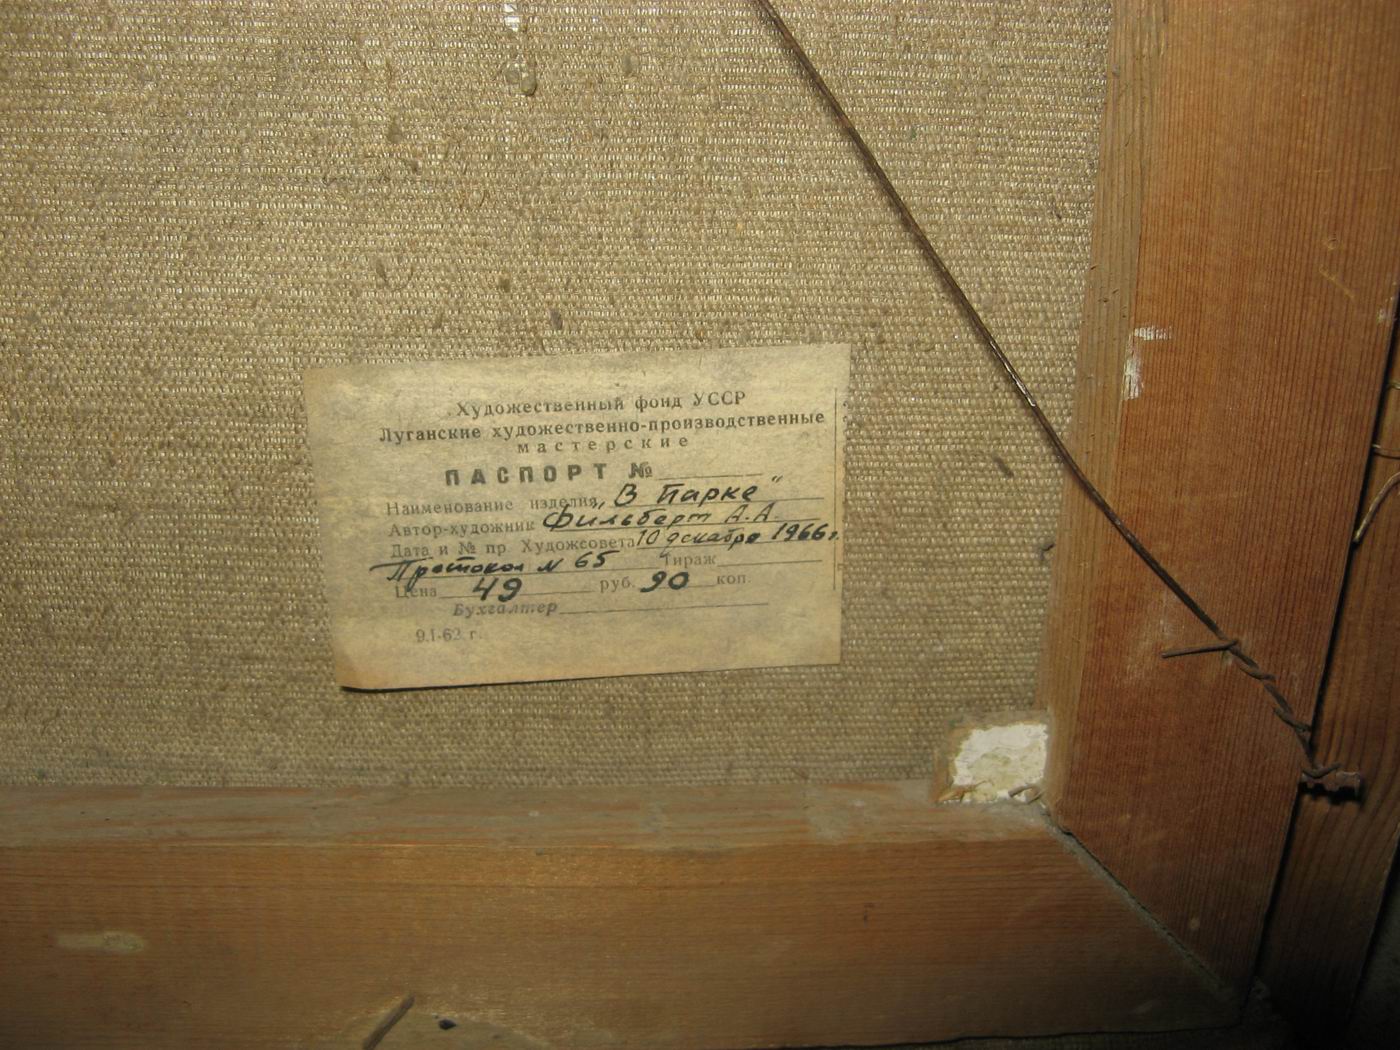 Художественный фонд УССР
Луганские художественно-производственные
мастерские
ПАСПОРТ №
Наименование изделия „В Парке"
Автор-художник Фильберт А.А.
Дата и № пр Худождсовета 10 декабря 1966 г.
Протокол № 65 Тираж
Цена 49 руб. 90 коп.
Бухгалтер
9.I-62 г.